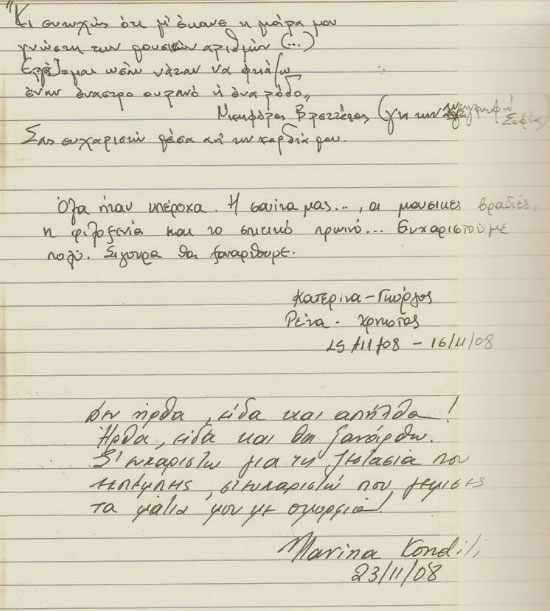 "Κι ευτυχώς ότι μ' έκανε η μοίρα μου
γνώστη των μυστικών αριθμών (...)
Εργάζομαι ωσάν νάταν να φτιάξω
έναν έναστρο ουρανό ή ένα ρόδο,,
Νικηφόρος Βρεττάκος (για την
Σοφία)
Σας ευχαριστώ μέσα απ' την καρδιά μου.
Όλα ήταν υπέροχα. Η σουίτα μας..., οι μουσικές βραδιές,
η φιλοξενία και το σπιτικό πρωινό... Ευχαριστούμε
πολύ. Σίγουρα θα ξαναρθουμε.
Κατερίνα - Γιώργος
Ρένα - Χρήστος
15/11/08 - 16/11/08
Δεν ήρθα, είδα και απήλθα!
Ήρθα, είδα και θα ξανάρθω.
Σ' ευχαριστώ για τη ζεστασιά που
εκπέμπεις, σ' ευχαριστώ που γέμισες
τα μάτια μου με ομορφιά!
Marina Kondili
23/11/08